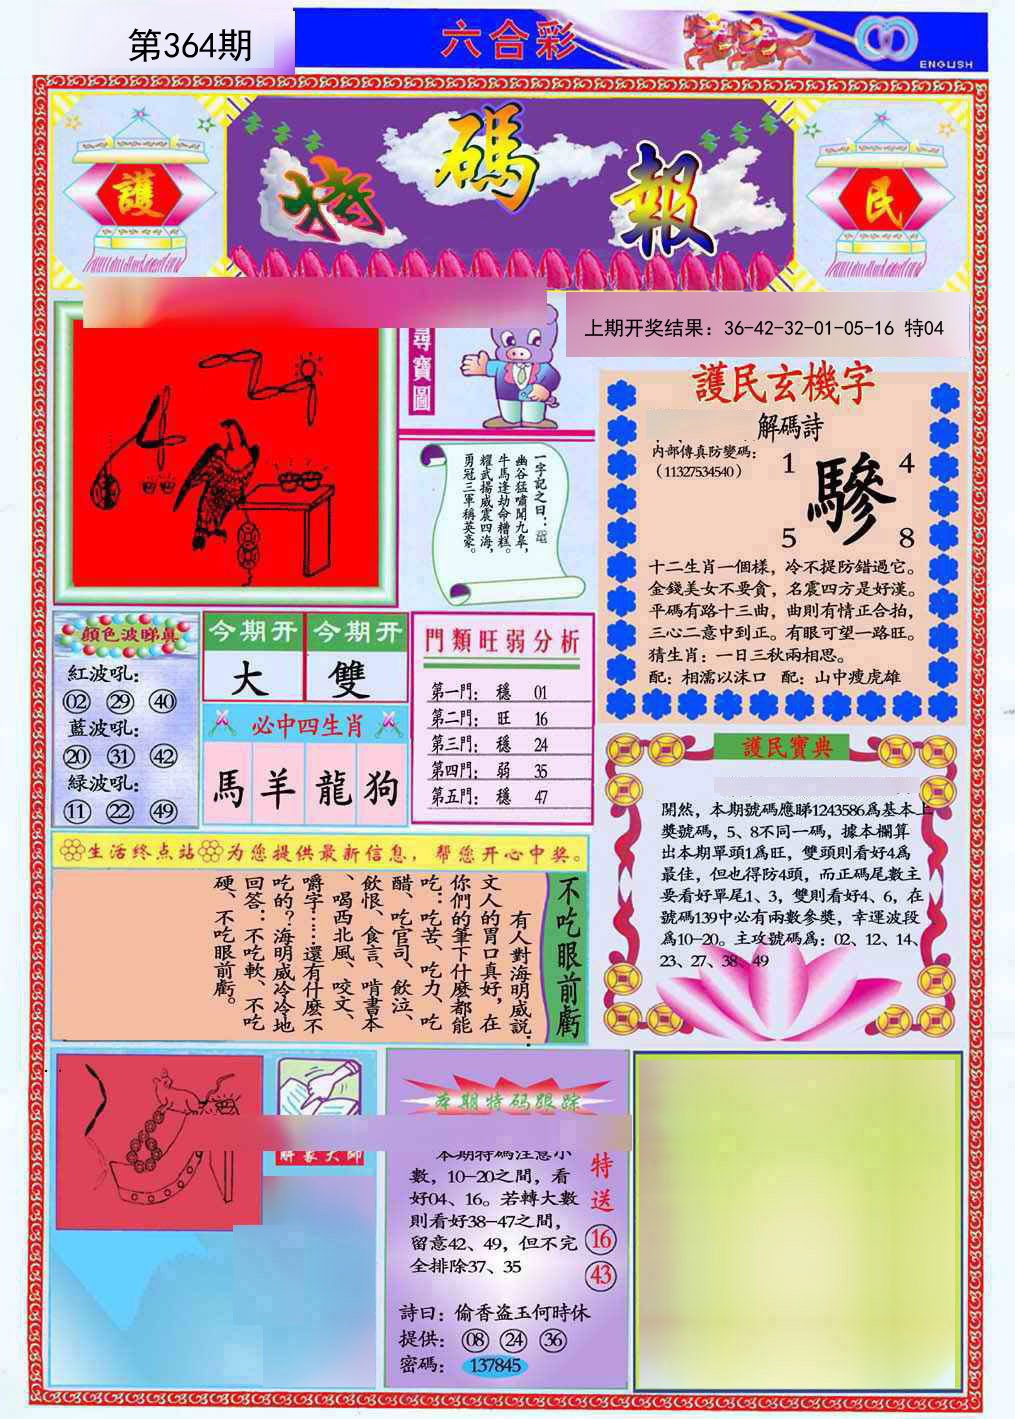 第364期
六合彩
ENGLISH
特碼報
護
民
上期开奖结果：36-42-32-01-05-16 特04
尋寶圖
一字記之曰：
幽谷猛嘯聞九皋，
牛馬逢劫命糟糕。
耀武揚威震四海，
勇冠三軍稱英豪。
護民玄機字
解碼詩
内部傳真防變碼：
（11327534540）
1 4
驂
5 8
十二生肖一個樣，冷不提防錯過它。
金錢美女不要貪，名震四方是好漢。
平碼有路十三曲，曲則有情正合拍，
三心二意中到正。有眼可望一路旺。
猜生肖：一日三秋兩相思。
配：相濡以沫口 配：山中瘦虎雄
顔色波睇真
紅波吼：
02 29 40
藍波吼：
20 31 42
緑波吼：
11 22 49
今期开 今期开
大 雙
必中四生肖
馬 羊 龍 狗
門類旺弱分析
第一門： 穩 01
第二門： 旺 16
第三門： 穩 24
第四門： 弱 35
第五門： 穩 47
護民寶典
開然，本期號碼應睇1243586爲基本上
獎號碼，5、8不同一碼，據本欄算
出本期單頭1爲旺，雙頭則看好4爲
最佳，但也得防4頭，而正碼尾數主
要看好單尾1、3，雙則看好4、6，在
號碼139中必有兩數參獎，幸運波段
爲10-20。主攻號碼爲：02、12、14、
23、27、38、49
生活终点站 为您提供最新信息，帮您开心中奖。
不吃眼前虧
有人對海明威説：
文人的胃口真好，在
你們的筆下什麼都能
吃：吃苦、吃力、吃
醋、吃官司、飲泣、
飲恨、食言、啃書本
、喝西北風、咬文、
嚼字……還有什麼不
吃的？海明威冷冷地
回答：不吃軟、不吃
硬、不吃眼前虧。
解象大師
本期特码跟踪
本期特碼注意小
數，10-20之間，看
好04、16。若轉大數
則看好38-47之間，
留意42、49，但不完
全排除37、35
特送
16
43
詩曰：偷香盗玉何時休
提供： 08 24 36
密碼： 137845